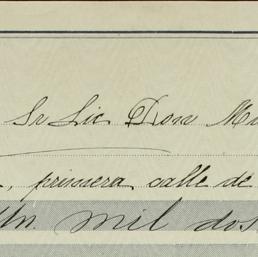 Sr Lic. Don
, primera calle de
Un mil dos